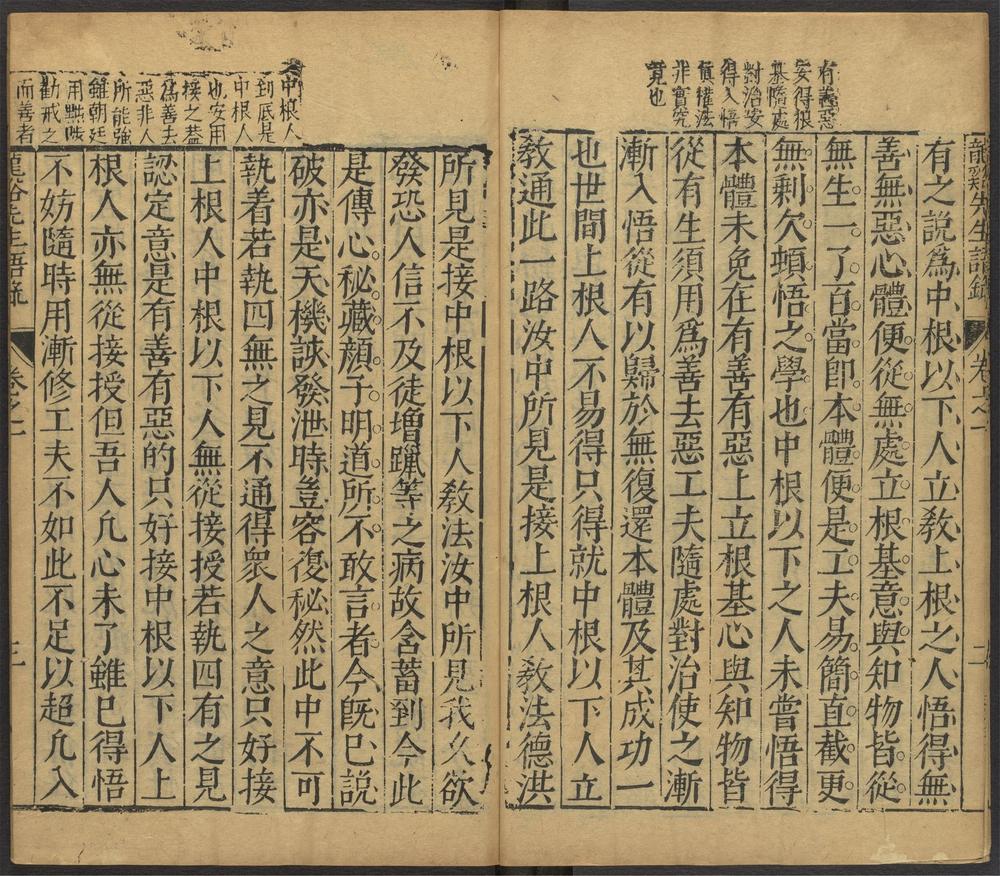 龍谿先生語錄
卷之一
二
有善惡
安得狼
基隨處
對治安
得入悟
眞權法
非實究
竟也
有之說爲中根以下人立教上根之人悟得無
善無惡心體便從無處立根基意與知物皆從
無生一了百當即本體便是工夫易簡直截更
無剩欠頓悟之學也中根以下之人未嘗悟得
本體未免在有善有惡上立根基心與知物皆
從有生須用爲善去惡工夫隨處對治使之漸
漸入悟從有以歸於無復還本體及其成功一
也世間上根人不易得只得就中根以下人立
教通此一路汝中所見是接上根人教法德洪
中根人
到底是
中根人
也安用
接之葢
爲善去
惡非人
所能強
雖朝廷
用黜陟
勸戒之
而善者
所見是接中根以下人教法汝中所見我久欲
發恐人信不及徒增躐等之病故含蓄到今此
是傳心秘藏顏子明道所不敢言者今旣已說
破亦是天機該發泄時豈容復秘然此中不可
執着若執四無之見不通得衆人之意只好接
上根人中根以下人無從接授若執四有之見
認定意是有善有惡的只好接中根以下人上
根人亦無從接授但吾人凡心未了雖已得悟
不妨隨時用漸修工夫不如此不足以超凡入
龍谿先生語錄
卷之一
三